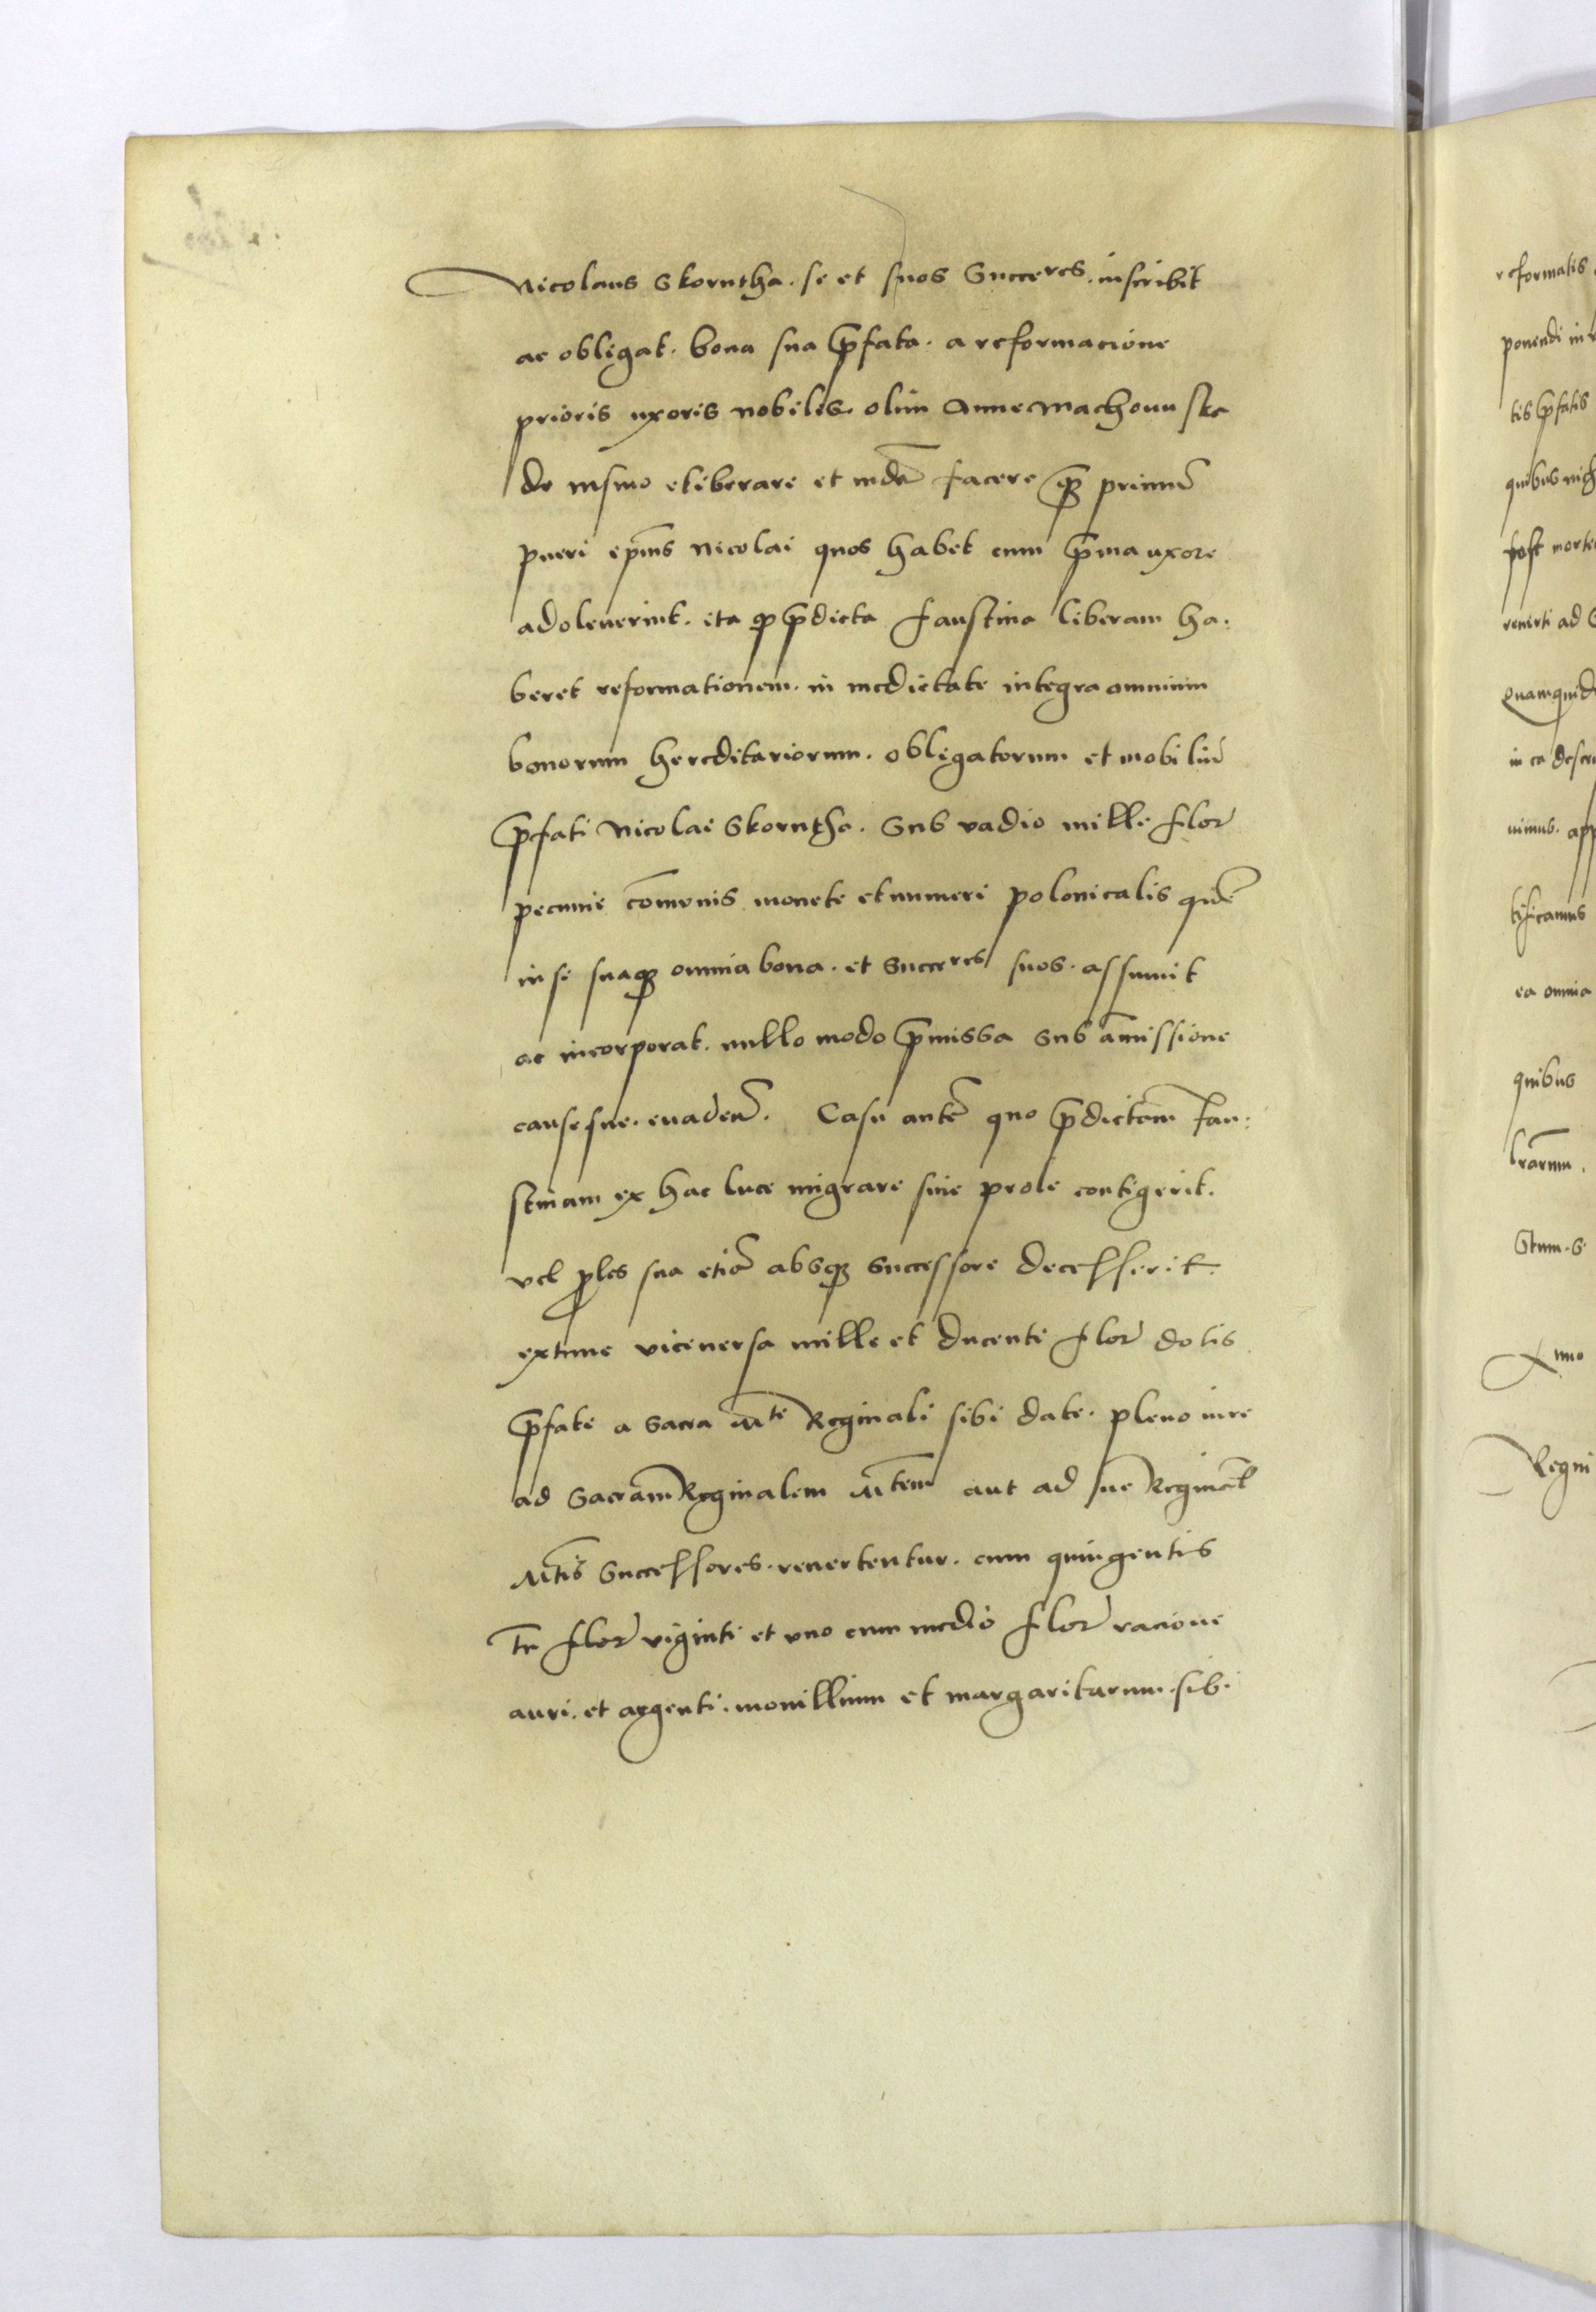 Nicolaus Skorutha. se et suos Succeres. inscribit
ac obligat. bona sua p̄fata. a reformacione
prioris uxoris nobilis. olim Anne Machowska
de eliberare et facere primū
pueri Nicolai quos habet cum p̄ma uxore
adoleuerint. ita ꝙ p̄dicta Faustina liberam ha:
beret reformationem. in medietate integra omnium
bonorum hereditariorum. obligatorum et mobiliū
p̄fati Nicolai Skorutha. Sub vadio mille flor
pecunie cōmunis monete et numeri polonicalis qd̄
in se suaqꝫ omnia bona. et Succeres suos. assumit
ac incorporat. nullo modo p̄missa sub amissione
cause sue. euadenꝭ. Casu autē quo p̄dictam Fau:
stinam ex hac luce migrare sine prole contigerit.
vel ꝓles sua etiā absqꝫ Successore decesserit.
extunc viceuersa mille et ducenti flor dotis
p̄fate a Sacra Mte Reginali sibi date. pleno iure
ad Sacram Reginalem Mtem aut ad sue Reginal̄
Mtis Successores. reuertentur. cum quingentis
flor viginti et vno cum medio flor racione
auri. et argenti. monillium et margaritarum. sib.
reformatis
ponendi in
tis p̄fatis
quibus
post morte
reuerti ad
in ea
uimus. app
tificamus
ea omnia
quibus
Regni